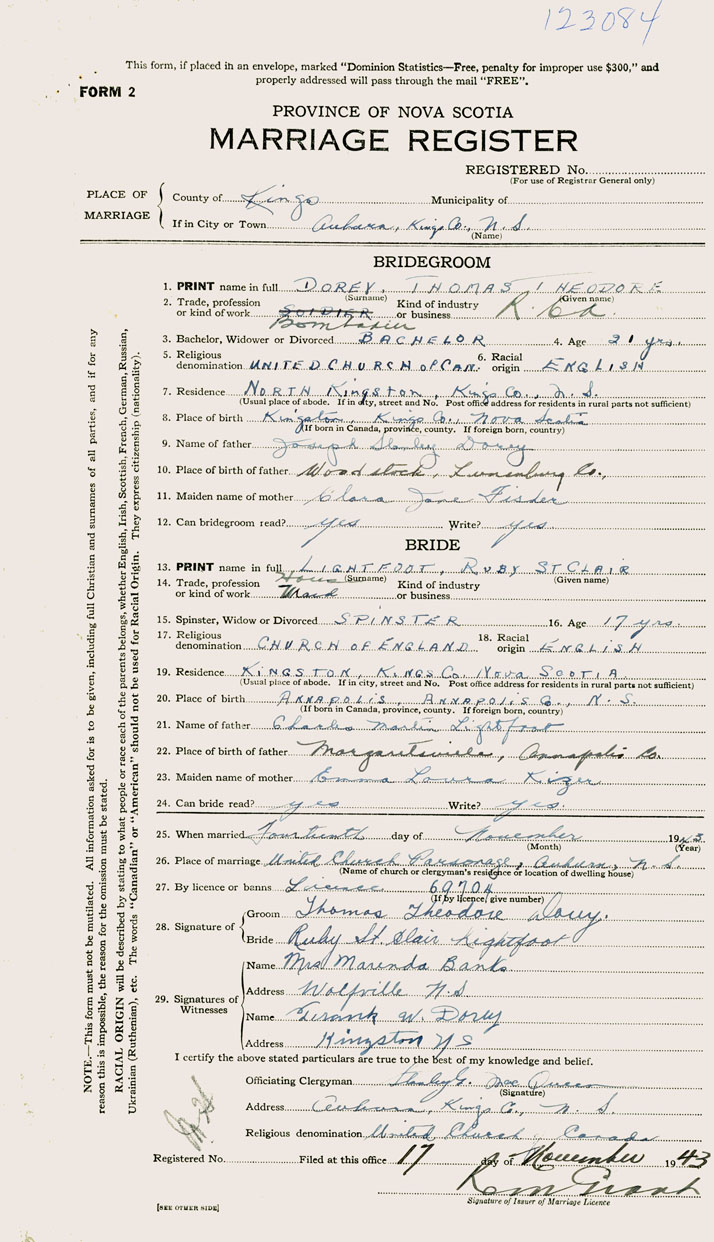 123084
This form, if placed in an envelope, marked "Dominion Statistics—Free, penalty for improper use $300," and
properly addressed will pass through the mail "FREE".
FORM 2
PROVINCE OF NOVA SCOTIA
MARRIAGE REGISTER
REGISTERED No.
(For use of Registrar General only)
PLACE OF MARRIAGE
County of Kings Municipality of
If in City or Town Auburn, Kings Co., N.S.
(Name)
BRIDEGROOM
1. PRINT name in full DOREY, THOMAS THEODORE
(Surname) (Given name)
2. Trade, profession or kind of work SOLDIER Bombadier Kind of industry or business
3. Bachelor, Widower or Divorced BACHELOR 4. Age 21 yrs.
5. Religious denomination UNITED CHURCH OF CAN. 6. Racial origin ENGLISH
7. Residence NORTH KINGSTON, KINGS CO., N.S.
(Usual place of abode. If in city, street and No. Post office address for residents in rural parts not sufficient)
8. Place of birth Kingston, Kings Co., Nova Scotia
(If born in Canada, province, county. If foreign born, country)
9. Name of father Joseph Stanley Dorey
10. Place of birth of father Woodstock, Lunenburg Co.,
11. Maiden name of mother Clara Jane Fisher
12. Can bridegroom read? yes Write? yes
BRIDE
13. PRINT name in full LIGHTFOOT, RUBY ST CLAIR
(Surname) (Given name)
14. Trade, profession or kind of work House Maid Kind of industry or business
15. Spinster, Widow or Divorced SPINSTER 16. Age 17 yrs.
17. Religious denomination CHURCH OF ENGLAND 18. Racial origin ENGLISH
19. Residence KINGSTON, KINGS CO NOVA SCOTIA
(Usual place of abode. If in city, street and No. Post office address for residents in rural parts not sufficient)
20. Place of birth ANNAPOLIS, ANNAPOLIS CO., N.S.
(If born in Canada, province, county. If foreign born, country)
21. Name of father Charles Martin Lightfoot
22. Place of birth of father Margaretsville, Annapolis Co.
23. Maiden name of mother Emma Laura Kizer
24. Can bride read? yes Write? yes.
25. When married Fourteenth day of November 1943
(Month) (Year)
26. Place of marriage United Church Parsonage, Auburn, N.S.
(Name of church or clergyman's residence or location of dwelling house)
27. By licence or banns License 69704
(If by licence, give number)
28. Signature of
Groom Thomas Theodore Dorey.
Bride Ruby St Clair Lightfoot
29. Signatures of Witnesses
Name Mrs Marenda Banks
Address Wolfville N.S
Name Frank W. Dorey
Address Kingston NS
I certify the above stated particulars are true to the best of my knowledge and belief.
Officiating Clergyman Stanley G. MacQueen
(Signature)
Address Auburn, Kings Co., N.S.
Religious denomination United Church, Canada
Registered No. Filed at this office 17 day of November 1943
Signature of Issuer of Marriage Licence
[SEE OTHER SIDE]
NOTE.—This form must not be mutilated. All information asked for is to be given, including full Christian and surnames of all parties, and if for any
reason this is impossible, the reason for the omission must be stated.
RACIAL ORIGIN will be described by stating to what people or race each of the parents belongs, whether English, Irish, Scottish, French, German, Russian,
Ukrainian (Ruthenian), etc. The words "Canadian" or "American" should not be used for Racial Origin. They express citizenship (nationality).